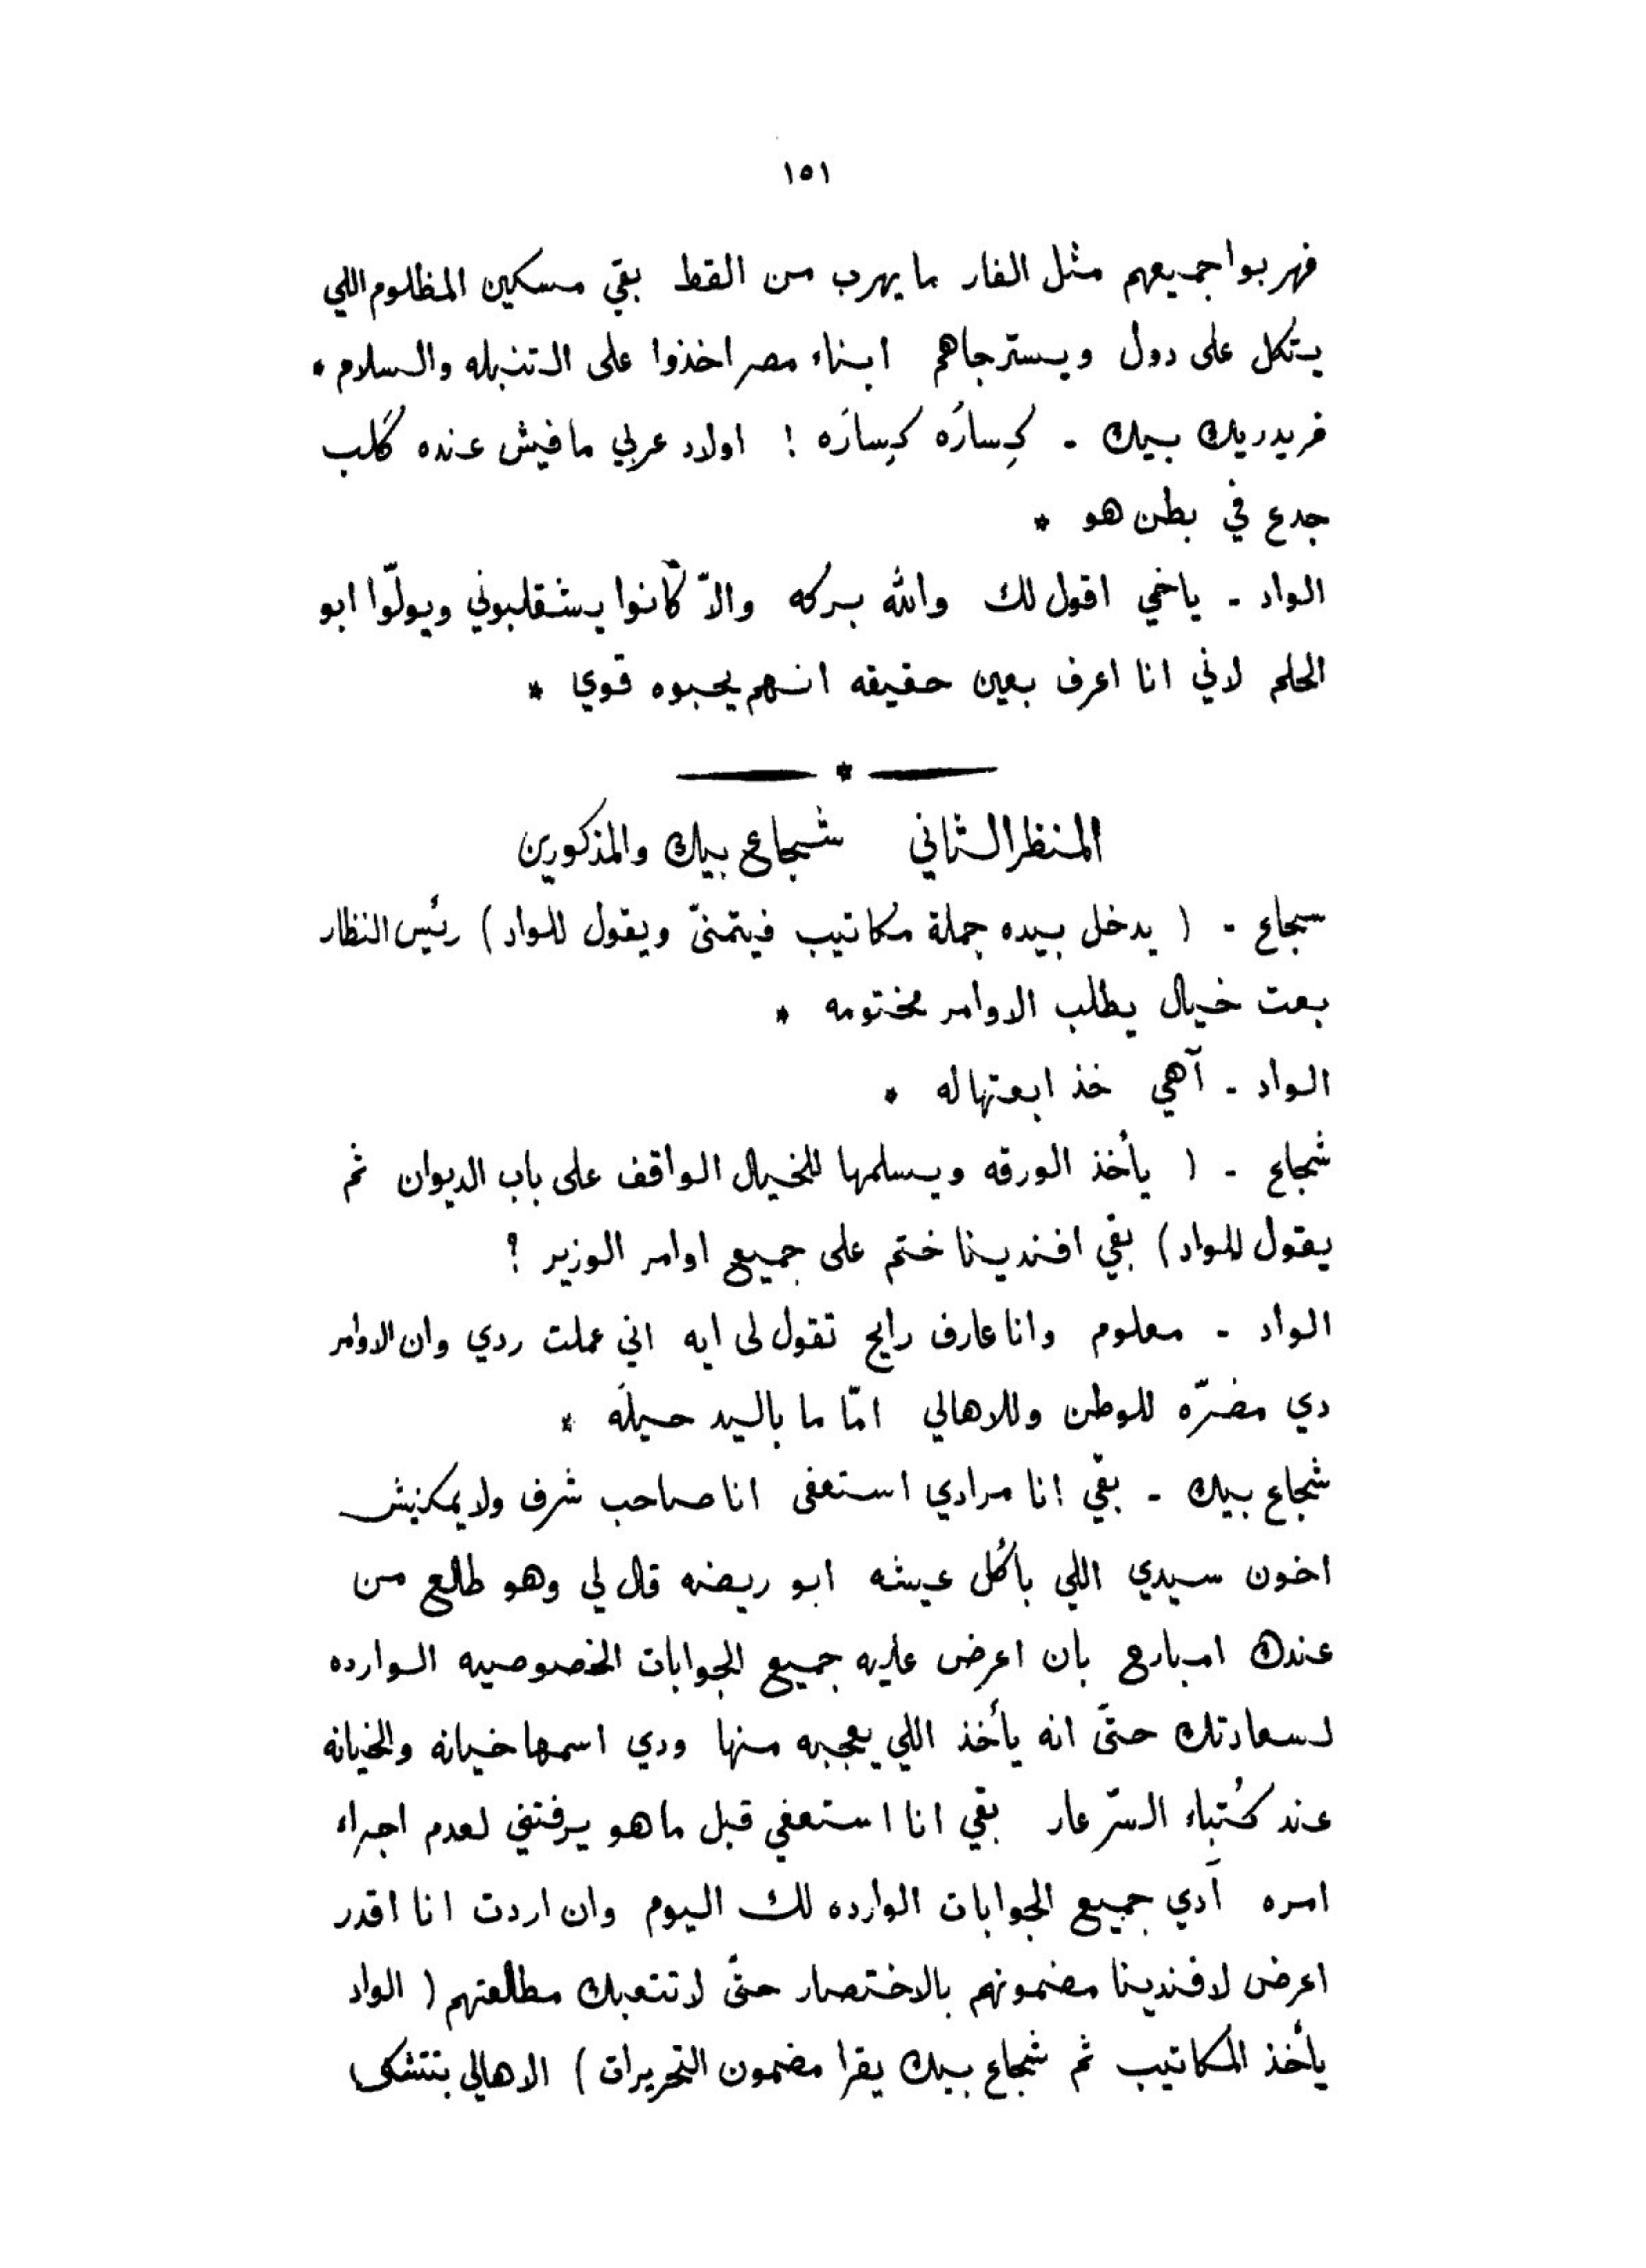 ١٥١
فهربوا جميعهم مثل الفار ما يهرب من القط بقي مسكين المظلوم اللي
يتكل على دول ويسترجاهم ابناء مصر اخذوا على التنبله والسلام *
فريدريك بيك - كِسارَه كِسارَه ! اولاد عربي مافيش عنده كَلب
جدع في بطن هو *
الواد - ياخي اقول لك والله بركه والاّ كانوا يشقلبوني ويولّوا ابو
الحلم لاني انا اعرف بعين حقيقه انهم يحبوه قوي *
المنظر الثاني شجاع بيك والمذكورين
سجاع - ( يدخل بيده جملة مكاتيب فيتمنّى ويقول للواد ) رئيس النظار
بعت خيال يطلب الاوامر مختومه *
الواد - آهي خذ ابعتها له *
شجاع - ( يأخذ الورقه ويسلمها للخيال الواقف على باب الديوان ثم
يقول للواد ) بقي افندينا ختم على جميع اوامر الوزير ؟
الواد - معلوم وانا عارف رايح تقول لى ايه اني عملت ردي وان الاوامر
دي مضرّه للوطن وللاهالي امّا ما باليد حيله *
شجاع بيك - بقي انا مرادي استعفى انا صاحب شرف ولا يمكنيش
اخون سيدي اللي بأكل عيشه ابو ريضه قال لي وهو طالع من
عندك امبارح بان اعرض عليه جميع الجوابات الخصوصيه الوارده
لسعادتك حتّى انه يأخذ اللي يعجبه منها ودي اسمها خيانه والخيانه
عند كُتباء السّر عار بقي انا استعفي قبل ما هو يرفتني لعدم اجراء
امره آدي جميع الجوابات الوارده لك اليوم وان اردت انا اقدر
اعرض لافندينا مضمونهم بالاختصار حتّى لا تتعبك مطالعتهم ( الواد
يأخذ المكاتيب ثم شجاع بيك يقرا مضمون التحريرات ) الاهالي بتتشكى